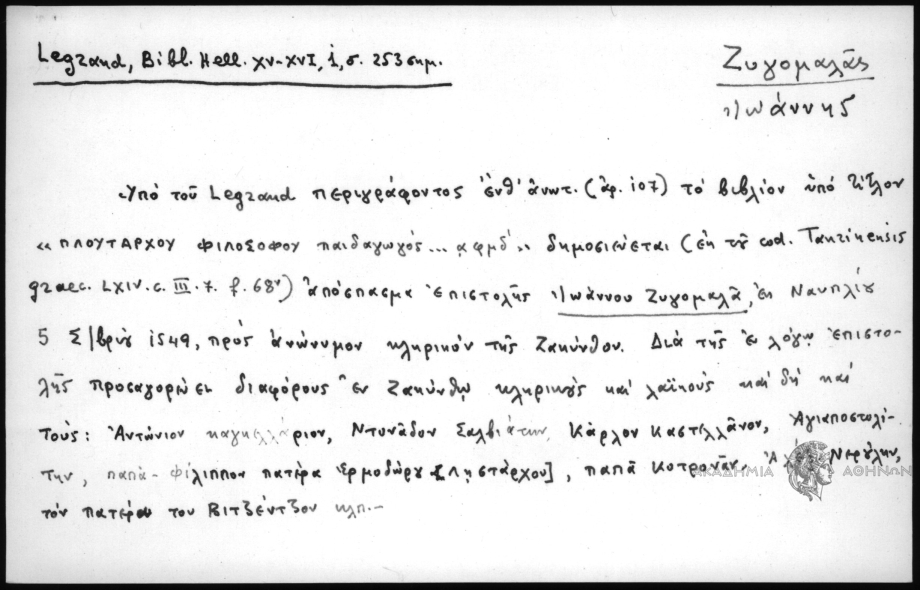 Legrand, Bibl. Hell. XV-XVI, 1, σ. 253 σημ.
Ζυγομαλᾶς
Ἰωάννης
Ὑπὸ τοῦ Legrand περιγράφοντος ἐνθ' ἀνωτ. (ἀρ. 107) τὸ βιβλίον ὑπὸ τίτλον
«ΠΛΟΥΤΑΡΧΟΥ ΦΙΛΟΣΟΦΟΥ παιδαγωγός... ͵αφμδʹ» δημοσιεύεται (ἐκ τοῦ cod. Taurinensis
graec. LXIV. c. III. 7. f. 68ᵛ) ἀπόσπασμα ἐπιστολῆς Ἰωάννου Ζυγομαλᾶ, ἐκ Ναυπλίου
5 Σ/βρίου 1549, πρὸς ἀνώνυμον κληρικὸν τῆς Ζακύνθου. Διὰ τῆς ἐν λόγῳ ἐπιστο-
λῆς προσαγορεύει διαφόρους ἐν Ζακύνθῳ κληρικοὺς καὶ λαϊκοὺς καὶ δὴ καὶ
τούς: Ἀντώνιον καγκελλάριον, Ντονάδον Σαλβιάτην, Κάρλον Καστελλᾶνον, Ἁγιαποστολί-
την, παπᾶ-Φίλιππον πατέρα Ἑρμοδώρου [Λῃστάρχου], παπᾶ Κοτρωνᾶν, Νερούλην,
τὸν πατέρα τοῦ Βιτζέντζου κλπ.-
ΑΚΑΔΗΜΙΑ ΑΘΗΝΩΝ